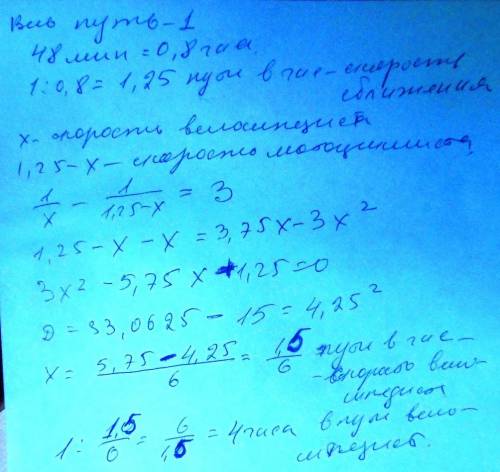 Весь путь-1
48 мин = 0,8 часа.
1:0,8 = 1,25 пути в час - скорость
сближения
x - скорость велосипедиста
1,25-x - скорость мотоциклиста
1/x - 1/(1,25-x) = 3
1,25-x-x = 3,75x-3x²
3x²-5,75x+1,25=0
D = 33,0625 - 15 = 4,25²
x = (5,75-4,25)/6 = 1,5/6 пути в час -
- скорость вело-
сипедиста
1 : 1,5/6 = 6/1,5 = 4 часа в пути вело-
сипедист.